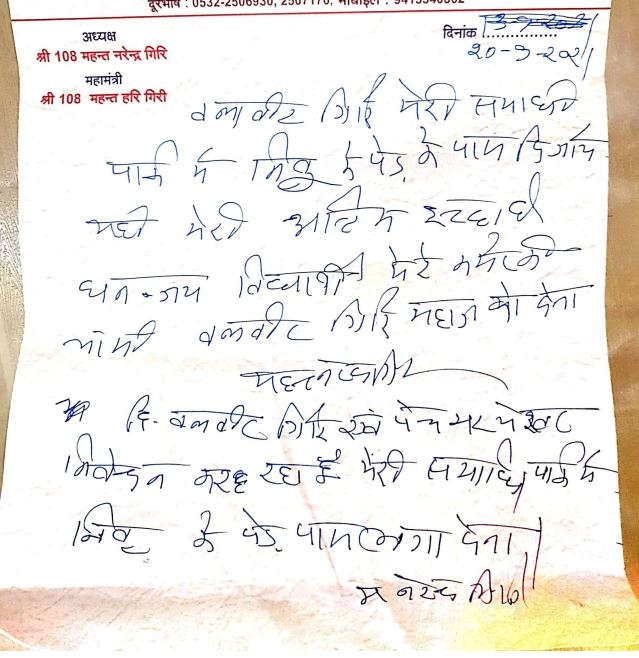 दूरभाष : 0532-2506930, 2507170, मोबाईल : 9415340802
अध्यक्ष
श्री 108 महन्त नरेन्द्र गिरि
महामंत्री
श्री 108 महन्त हरि गिरी
दिनांक
20-9-2021
बलवीर गिरि मेरी समाधी
पार्क में के पेड़ के पास दि जाय
यही मेरी अंतिम इच्छा है
धनन्जय विद्यार्थी मेरे कमरे की
चाभी बलवीर गिरि महाराज को देना
बलवीर गिरि एवं पंच परमेश्वर
निवेदन कर रहा हूँ मेरी समाधि पार्क में
के पेड़ पास लगा देना
म नरेन्द्र गिरि